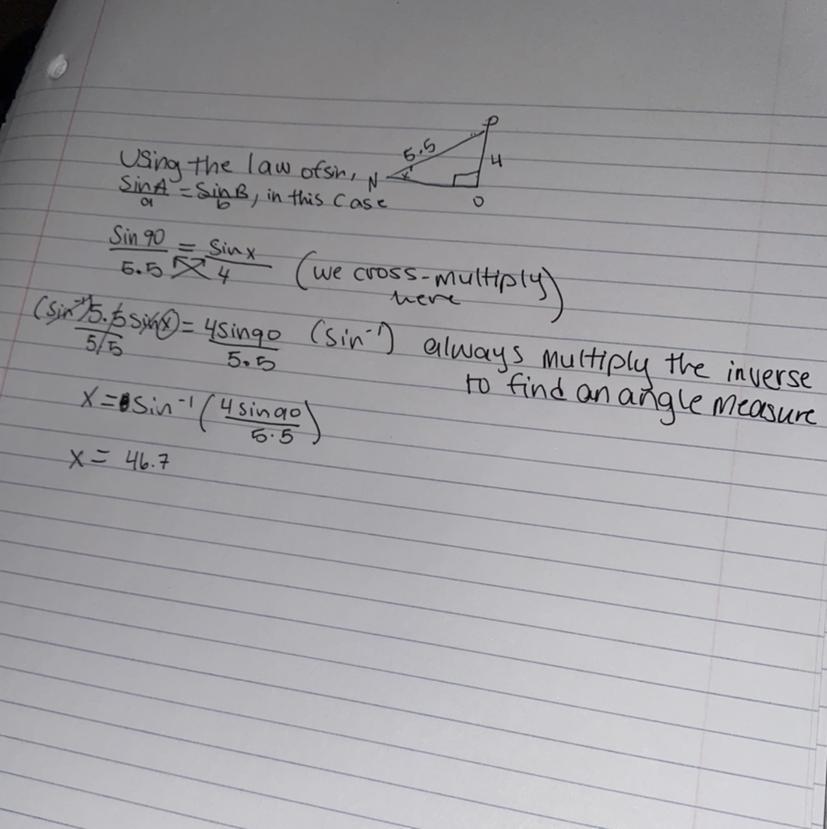 P
5.5
4
N
x
O
Using the law of sin,
Sin A/a = Sin B/b, in this case
Sin 90/5.5 = Sin x/4 (we cross-multiply)
here
(sin⁻¹) 5.5 sin(x)/5.5 = 4 sin 90/5.5 (sin⁻¹) always multiply the inverse
to find an angle measure
x = sin⁻¹ (4 sin 90/5.5)
x = 46.7